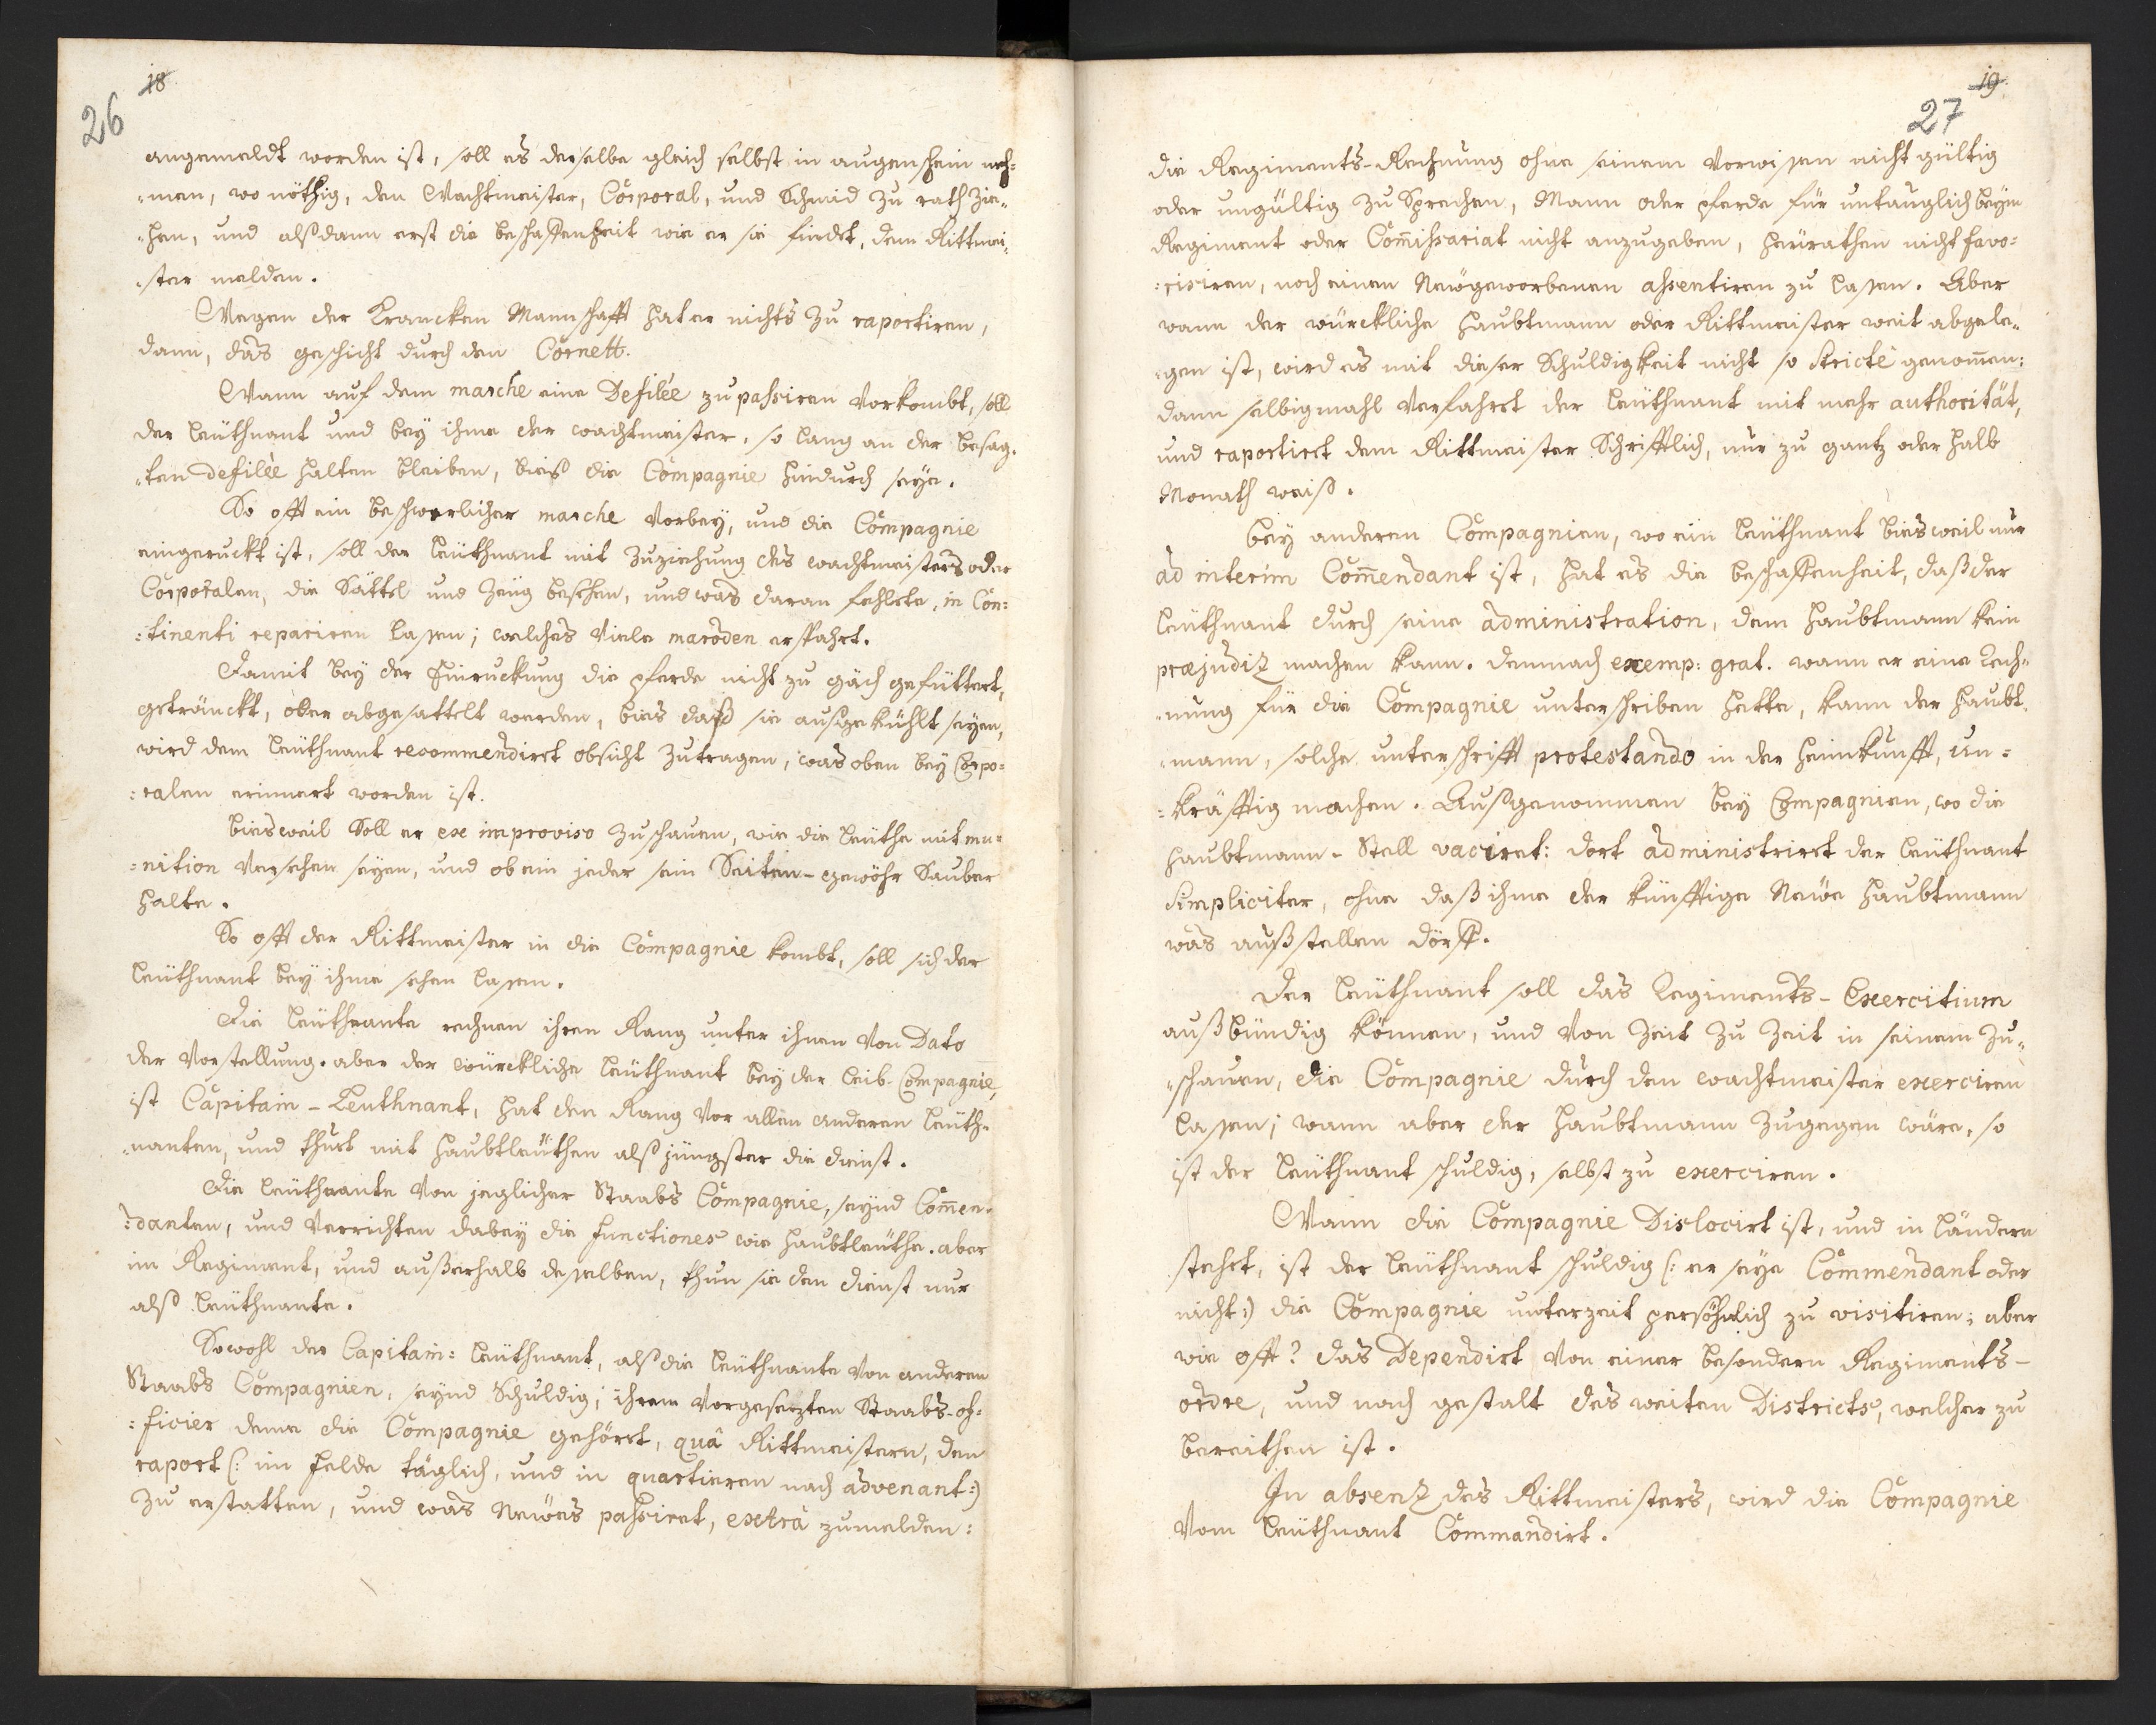 18
26
angemeldt worden ist, soll es derselbe gleich selbst in augenschein neh=
=men, wo nöthig, den Wachtmeister, Corporal, und Schmid zu rath zie=
=hen, und alßdann erst die beschaffenheit wie er sie findet, dem Rittmei=
=ster melden.
Wegen der Krancken Mannschafft hat er nichts zu raportiren,
dann, das geschicht durch den Cornett.
Wann auf dem marche eine Defilée zu passiren Vorkombt, soll
der leüthnant und bey ihme der wachtmeister, so lang an der besag=
=ten defilée halten bleiben, bieß die Compagnie hindurch seye.
So offt ein beschwerlicher marche Vorbey, und die Compagnie
eingeruckt ist, soll der leüthnant mit Zuziehung des wachtmeisters oder
Corporalen, die Sättel und Zeüg besehen, und was daran fehlete, in Con=
=tinenti repariren lassen; welches Viele maroden erspahrt.
Damit bey der Einruckung die pferde nicht zu gäch gefüttert,
getränckt, oder abgesattelt werden, bies daß sie ausgekühlt seyen,
wird dem leüthnant recommendiret obsicht zutragen, was oben bey Corpo=
=ralen erinnert worden ist.
biesweil Soll er ex improviso zuschauen, wie die leüthe mit mu=
=nition Versehen seyen, und ob ein jeder sein Seiten-gewöhr Sauber
halte.
So offt der Rittmeister in die Compagnie kombt, soll sich der
leüthnant bey ihme sehen lassen.
Die leüthnante rechnen ihren Rang unter ihnen Von Dato
der Vorstellung. aber der würckliche leüthnant bey der leib-Compagnie,
ist Capitain-Leuthnant, hat den Rang Vor allen anderen leüth=
=nanten, und thuet mit haubtleüthen alß jüngster die dienst.
Die leüthnante Von jeglicher Staabs Compagnie, seynd Com̄en=
=danten, und Verrichten dabey die functiones wie haubtleüthe. aber
im Regiment, und außerhalb desselben, thun sie den dienst nur
alß leüthnante.
Sowohl der Capitain=leüthnant, alß die leüthnante Von anderen
Staabs Compagnien, seynd Schuldig; ihrem Vorgesezten Staabs-of=
=ficier deme die Compagnie gehöret, quâ Rittmeistern, den
raport (: im felde täglich, und in quartieren nach advenant:)
zu erstatten, und was Neües passiret, extrà zumelden:
19.
27
die Regiments-Rechnung ohne seinem Vorwissen nicht gültig
oder ungültig zu Sprechen, Mann oder pferde für untauglich beym
Regiment oder Com̄issariat nicht anzugeben, heürathen nicht favo=
=risiren, noch einen Neügeworbenen assentiren zu lassen. Aber
wann der würckliche haubtmann oder Rittmeister weit abgele=
=gen ist, wird es mit dieser Schuldigkeit nicht so stricte genom̄en:
dann selbigmahl Verfahret der leüthnant mit mehr authorität,
und raportiret dem Rittmeister Schrifftlich, nur zu gantz oder halb
Monath weiß.
bey anderen Compagnien, wo ein leüthnant biesweil nur
ad interim Com̄endant ist, hat es die beschaffenheit, daß der
leüthnant durch seine administration, dem haubtmann kein
præjudiz machen kann. demnach exemp: grat. wann er eine Rech=
=nung für die Compagnie unterschriben hette, kann der haubt=
=mann, solche unterschrifft protestando in der heimkunfft, un=
=kräfftig machen. Außgenommen bey Compagnien, wo die
haubtmann-Stell vaciret: dort administriret der leüthnant
simpliciter, ohne daß ihme der künfftige Neüe haubtmann
was außstellen dörff.
Der leüthnant soll das Regiments-Exercitium
außbündig können, und Von Zeit zu Zeit in seinem zu=
=schauen, die Compagnie durch den wachtmeister exerciren
lassen; wann aber der haubtmann zugegen wäre, so
ist der leüthnant schuldig, selbst zu exerciren.
Wann die Compagnie Dislocirt ist, und in ländern
stehet, ist der leüthnant schuldig (: er seye Commendant oder
nicht:) die Compagnie unterzeit persöhnlich zu visitiren; aber
wie offt? das Dependirt Von einer besondern Regiments-
ordre, und nach gestalt des weiten Districts, welcher zu
bereithen ist.
In absenz des Rittmeisters, wird die Compagnie
Vom leüthnant Commandirt.